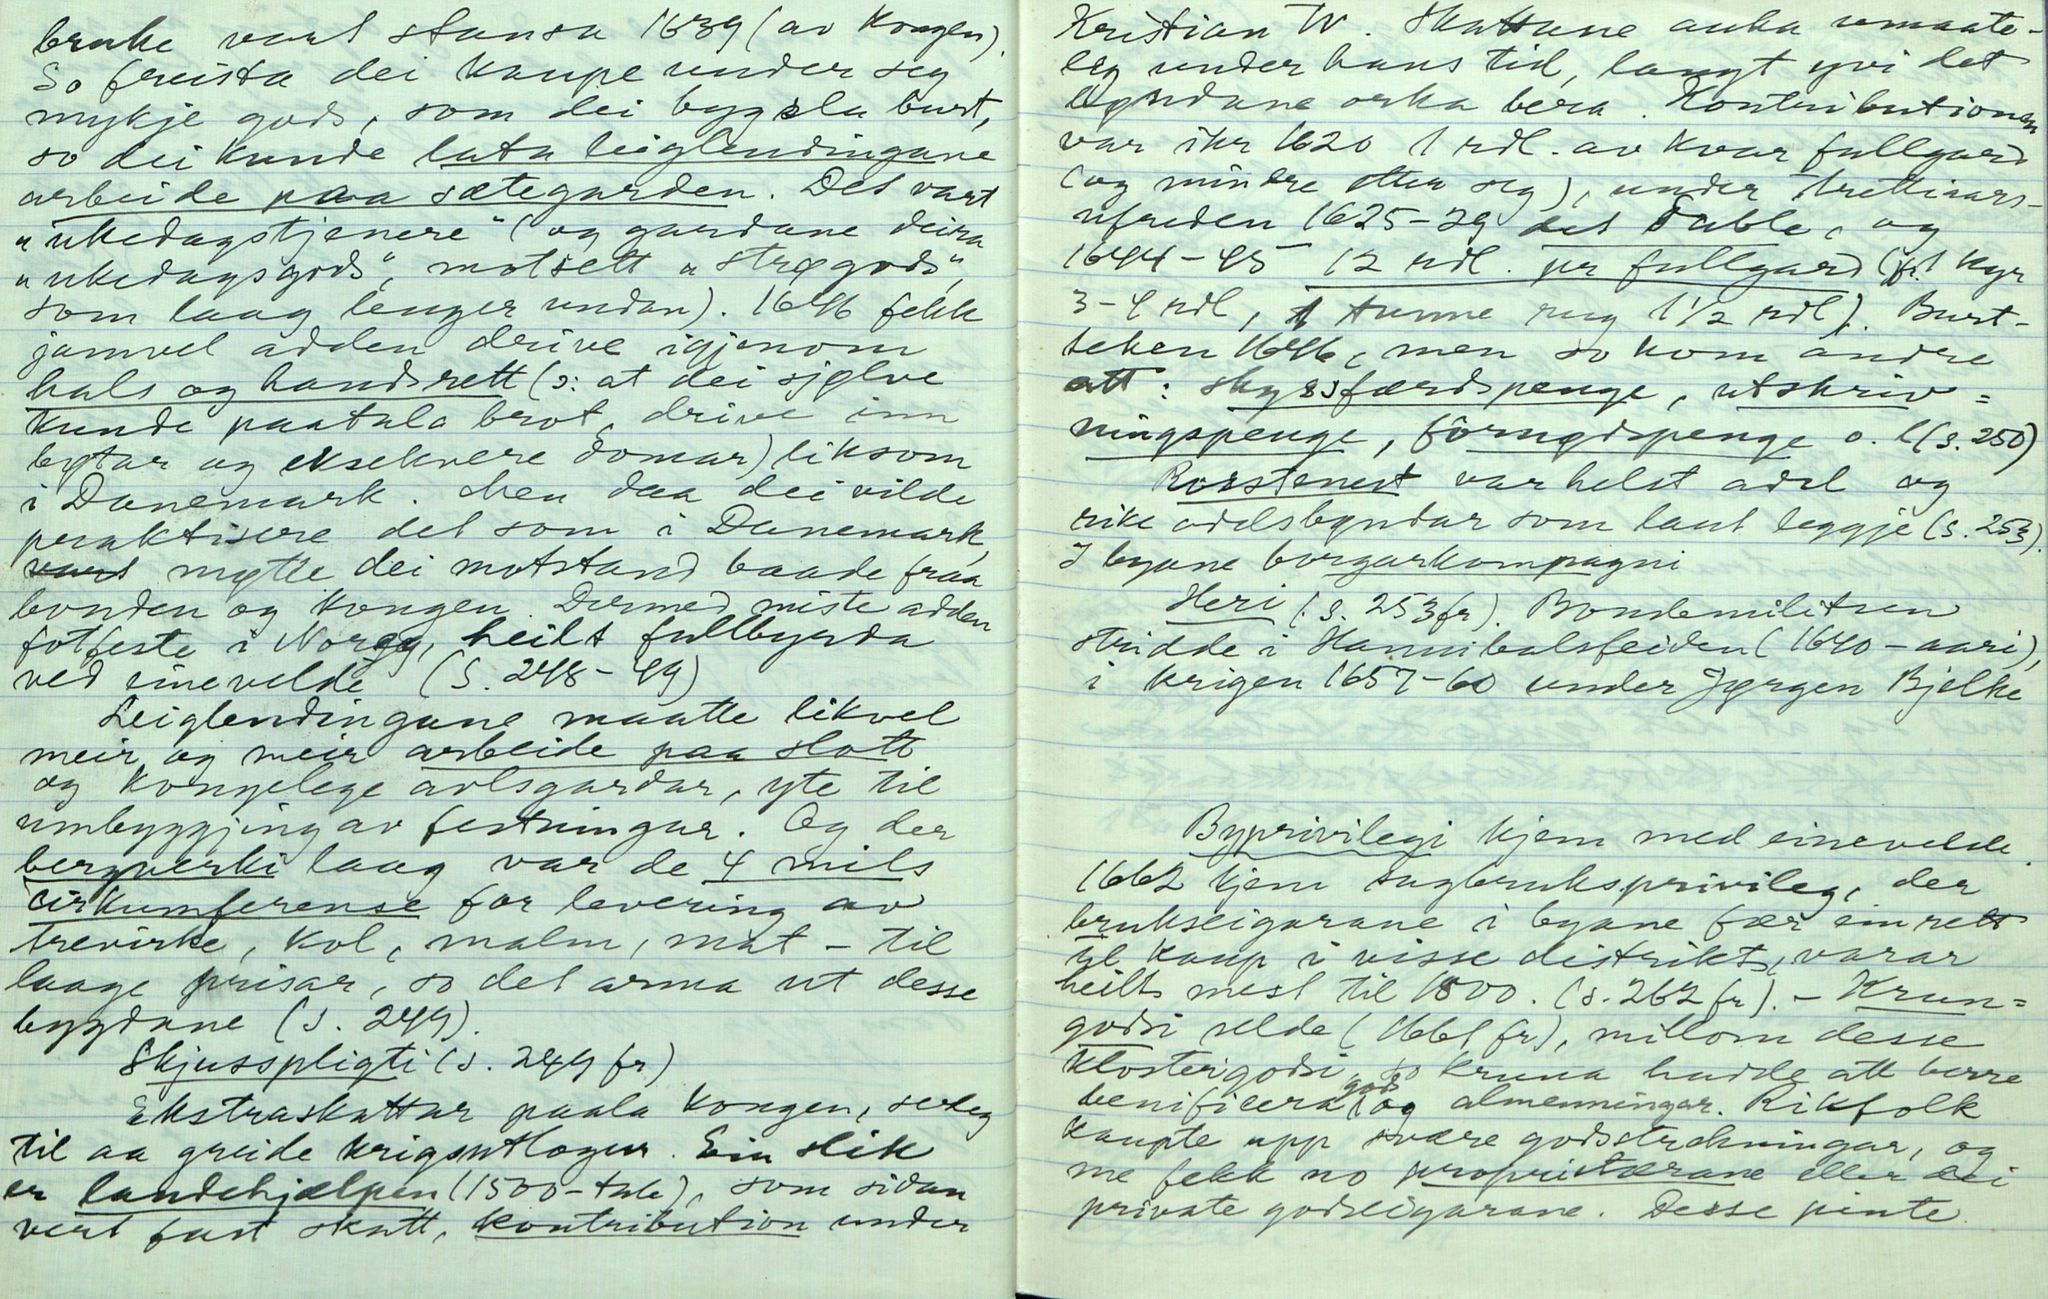 bruke vart stansa 1639 (av Kongen).
So freista dei kaupe under seg
mykje gods, som dei bygsla burt,
so dei kunde lata leiglendingane
arbeide paa sætegarden. Det vart
„ukedagstjenere“ (og gardane deira
„ukedagsgods“, motsett „strøgods“,
som laag lenger undan). 1646 fekk
jamvel adelen drive igjenom
hals og handsrett (ɔ: at dei sjølve
kunde paatala brot, drive inn
bøtar og eksekvere domar) liksom
i Danemark. Men daa dei vilde
praktisere det som i Danemark,
vart møtte dei motstand baade fraa
bonden og kongen. Dermed miste adelen
fotfeste i Noreg, heilt fullbyrda
ved einevelde (s. 248-49)
Leiglendingane maatte likvel
meir og meir arbeide paa slott
og kongelege avlsgardar, yte til
umbyggjing av festningar. Og der
bergverki laag var de 4 mils
cirkumferense for levering av
trevirke, kol, malm, mat - til
laage prisar, so det arma ut desse
bygdane (s. 249).
Skjusspligti (s. 249 fr)
Ekstraskattar paala kongen, serleg
til aa greide krigsutlogur. Ein slik
er landehjælpen (1500-tale), som sidan
vert fast skatt, kontribution under
Kristian IV. Skattane auka umaate-
leg under hans tid, langt yvi det
bøndane orka bera. Kontributionen
var ikr 1620 1 rdl. av kvar fullgard
(og mindre etter seg), under trettiaars-
ufreden 1625-29 det dable, og
1644-45 12 rdl. pr fullgard (fr. 1 kyr
3-4 rdl, 1 tunne rug 1 1/2 rdl). Burt-
teken 1646, men so kom andre
att: skyssfærdspenge, utskriv=
ningspenge, fornødspenge o. l (s. 250)
Rosstenest var helst adel og
rike odelsbøndar som laut leggje (s. 253).
I byane borgarkompagni
Heri (s. 253 fr). Bondemilitsen
stridde i Hannibalsfeiden (1640-aari),
i krigen 1657-60 under Jørgen Bjelke
Byprivilegi kjem med einevelde.
1662 kjem sagbruksprivileg, der
brukseigarane i byane fær einrett
til kaup i visse distrikt, varar
heilt mest til 1800. (s. 262 fr). - Krun=
godsi selde (1661 fr), millom desse
klostergodsi, so kruna hadde att berre
benificera gods og almenningar. Rikfolk
kaupte upp svære godsstrekningar, og
me fekk no proprietærane eller dei
private godseigarane. Desse pinte